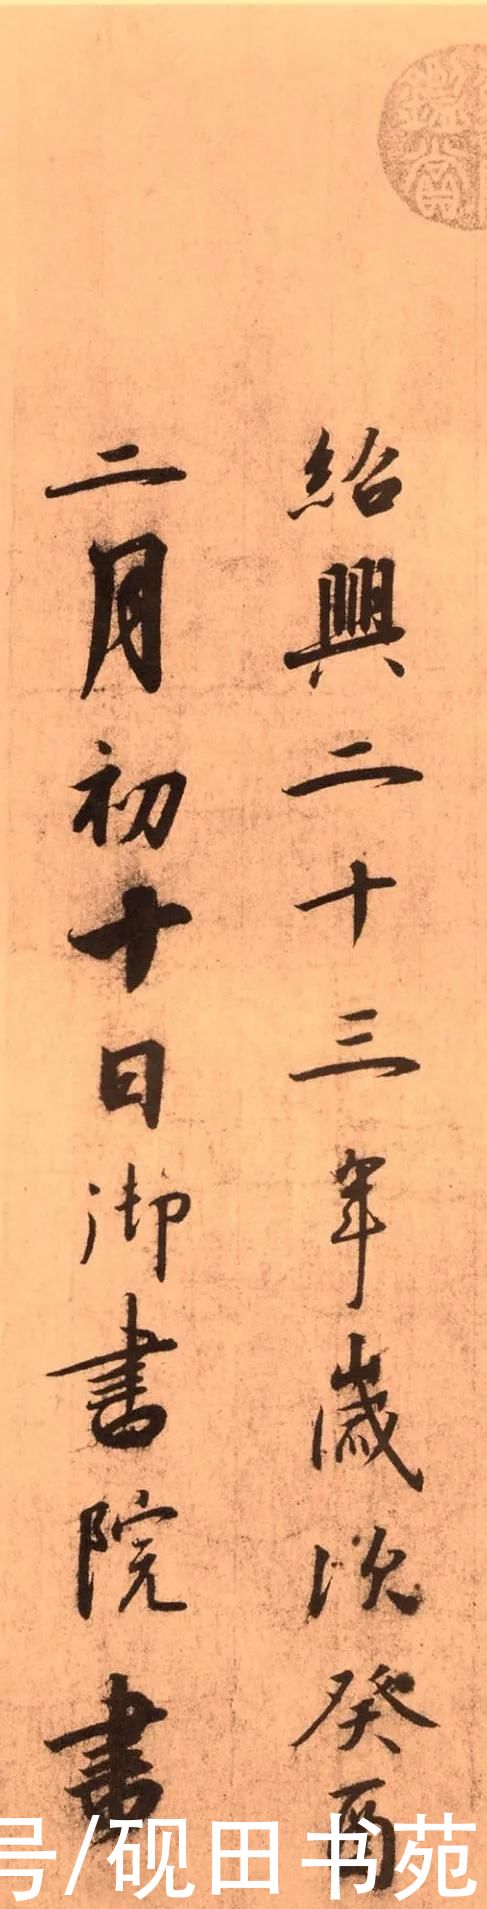 紹興二十三年歲次癸酉
二月初十日御書院書
鑑賞
号/砚田书苑